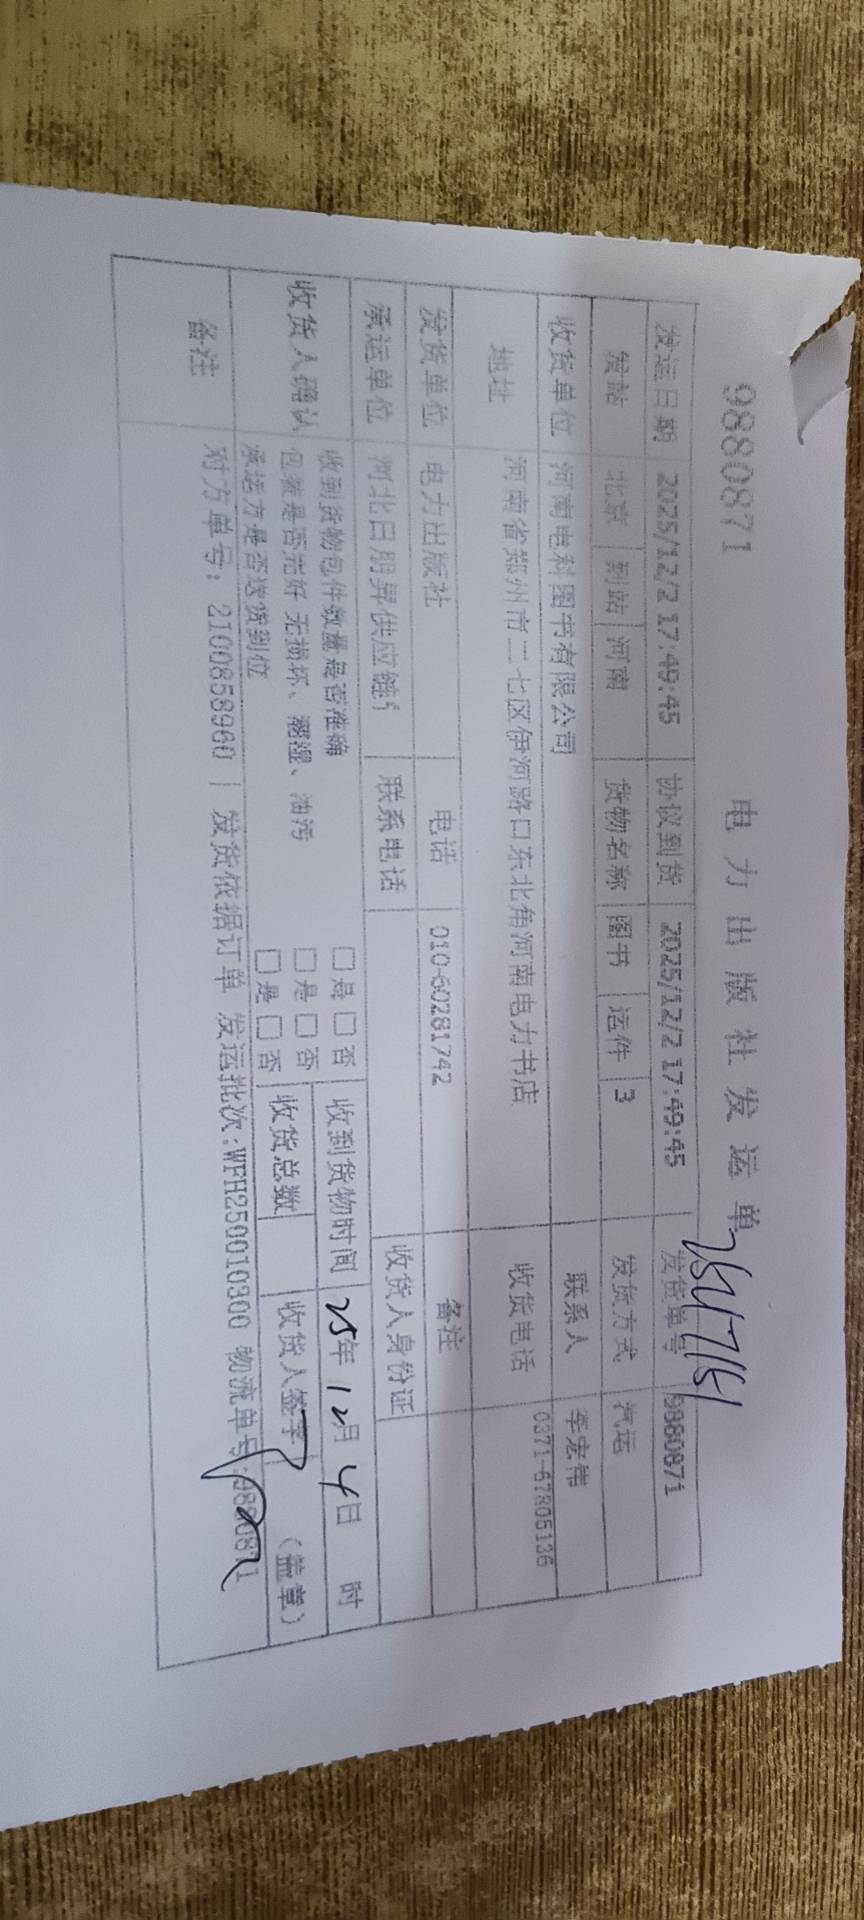 9880871
电力出版社发运单
发运日期 2025/12/2 17:49:45 协议到货 2025/12/2 17:49:45 发货单号 9880871
发站 北京 到站 河南 货物名称 图书 运件 3 发货方式 汽运
收货单位 河南电科图书有限公司 联系人 李宏伟
地址 河南省郑州市二七区伊河路口东北角河南电力书店 收货电话 0371-67805136
发货单位 电力出版社 电话 010-60281742 备注
承运单位 河北日朋昇供应链 联系电话 收货人身份证
收货人确认 收到货物包件数量是否准确 □是□否 收到货物时间 25年12月4日 时
包装是否完好 无损坏、潮湿、油污 □是□否 收货总数 收货人签字 (盖章)
承运方是否送货到位 □是□否
备注 对方单号：2100858960 | 发货依据订单 发运批次:WFH250010300 物流单号:9880871